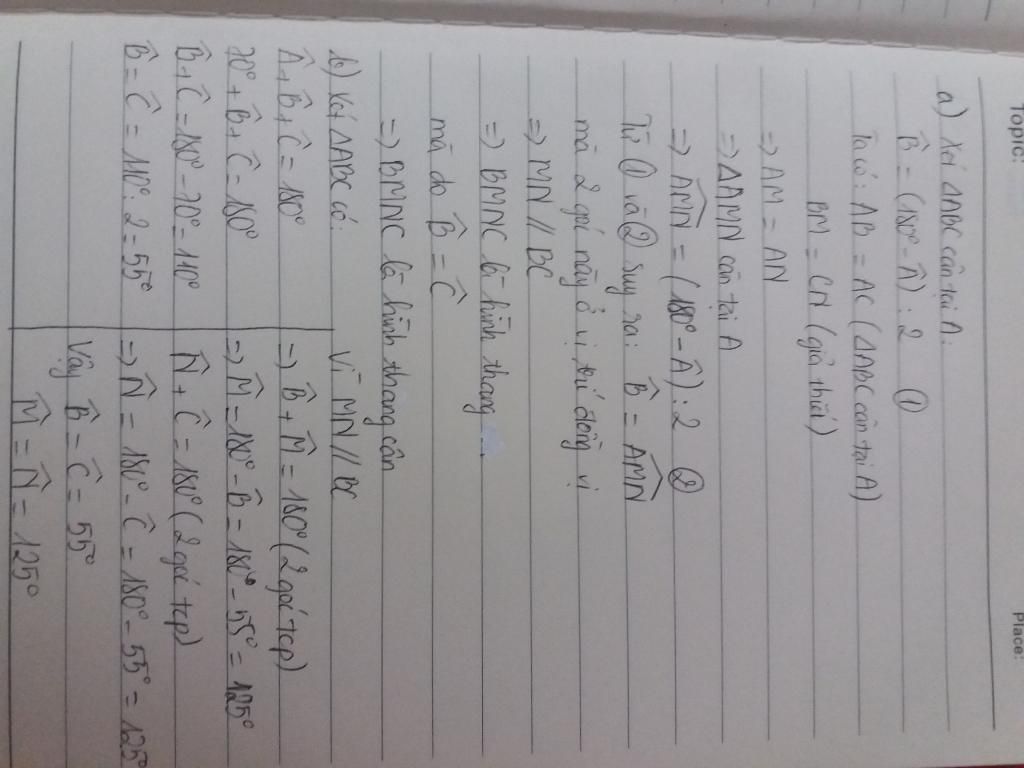 Topic:
Place:
a) Xét ΔABC cân tại A:
B̂ = (180° - Â) : 2 ①
Ta có: AB = AC (ΔABC cân tại A)
BM = CN (giả thiết)
=> AM = AN
=> ΔAMN cân tại A
=> AMN̂ = (180° - Â) : 2 ②
Từ ① và ② suy ra: B̂ = AMN̂
mà 2 góc này ở vị trí đồng vị
=> MN // BC
=> BMNC là hình thang
mà do B̂ = Ĉ
=> BMNC là hình thang cân
b) Xét ΔABC có:
Â + B̂ + Ĉ = 180°
70° + B̂ + Ĉ = 180°
B̂ + Ĉ = 180° - 70° = 110°
B̂ = Ĉ = 110° : 2 = 55°
Vì MN // BC
=> B̂ + M̂ = 180° (2 góc tcp)
=> M̂ = 180° - B̂ = 180° - 55° = 125°
N̂ + Ĉ = 180° (2 góc tcp)
=> N̂ = 180° - Ĉ = 180° - 55° = 125°
Vậy B̂ = Ĉ = 55°
M̂ = N̂ = 125°